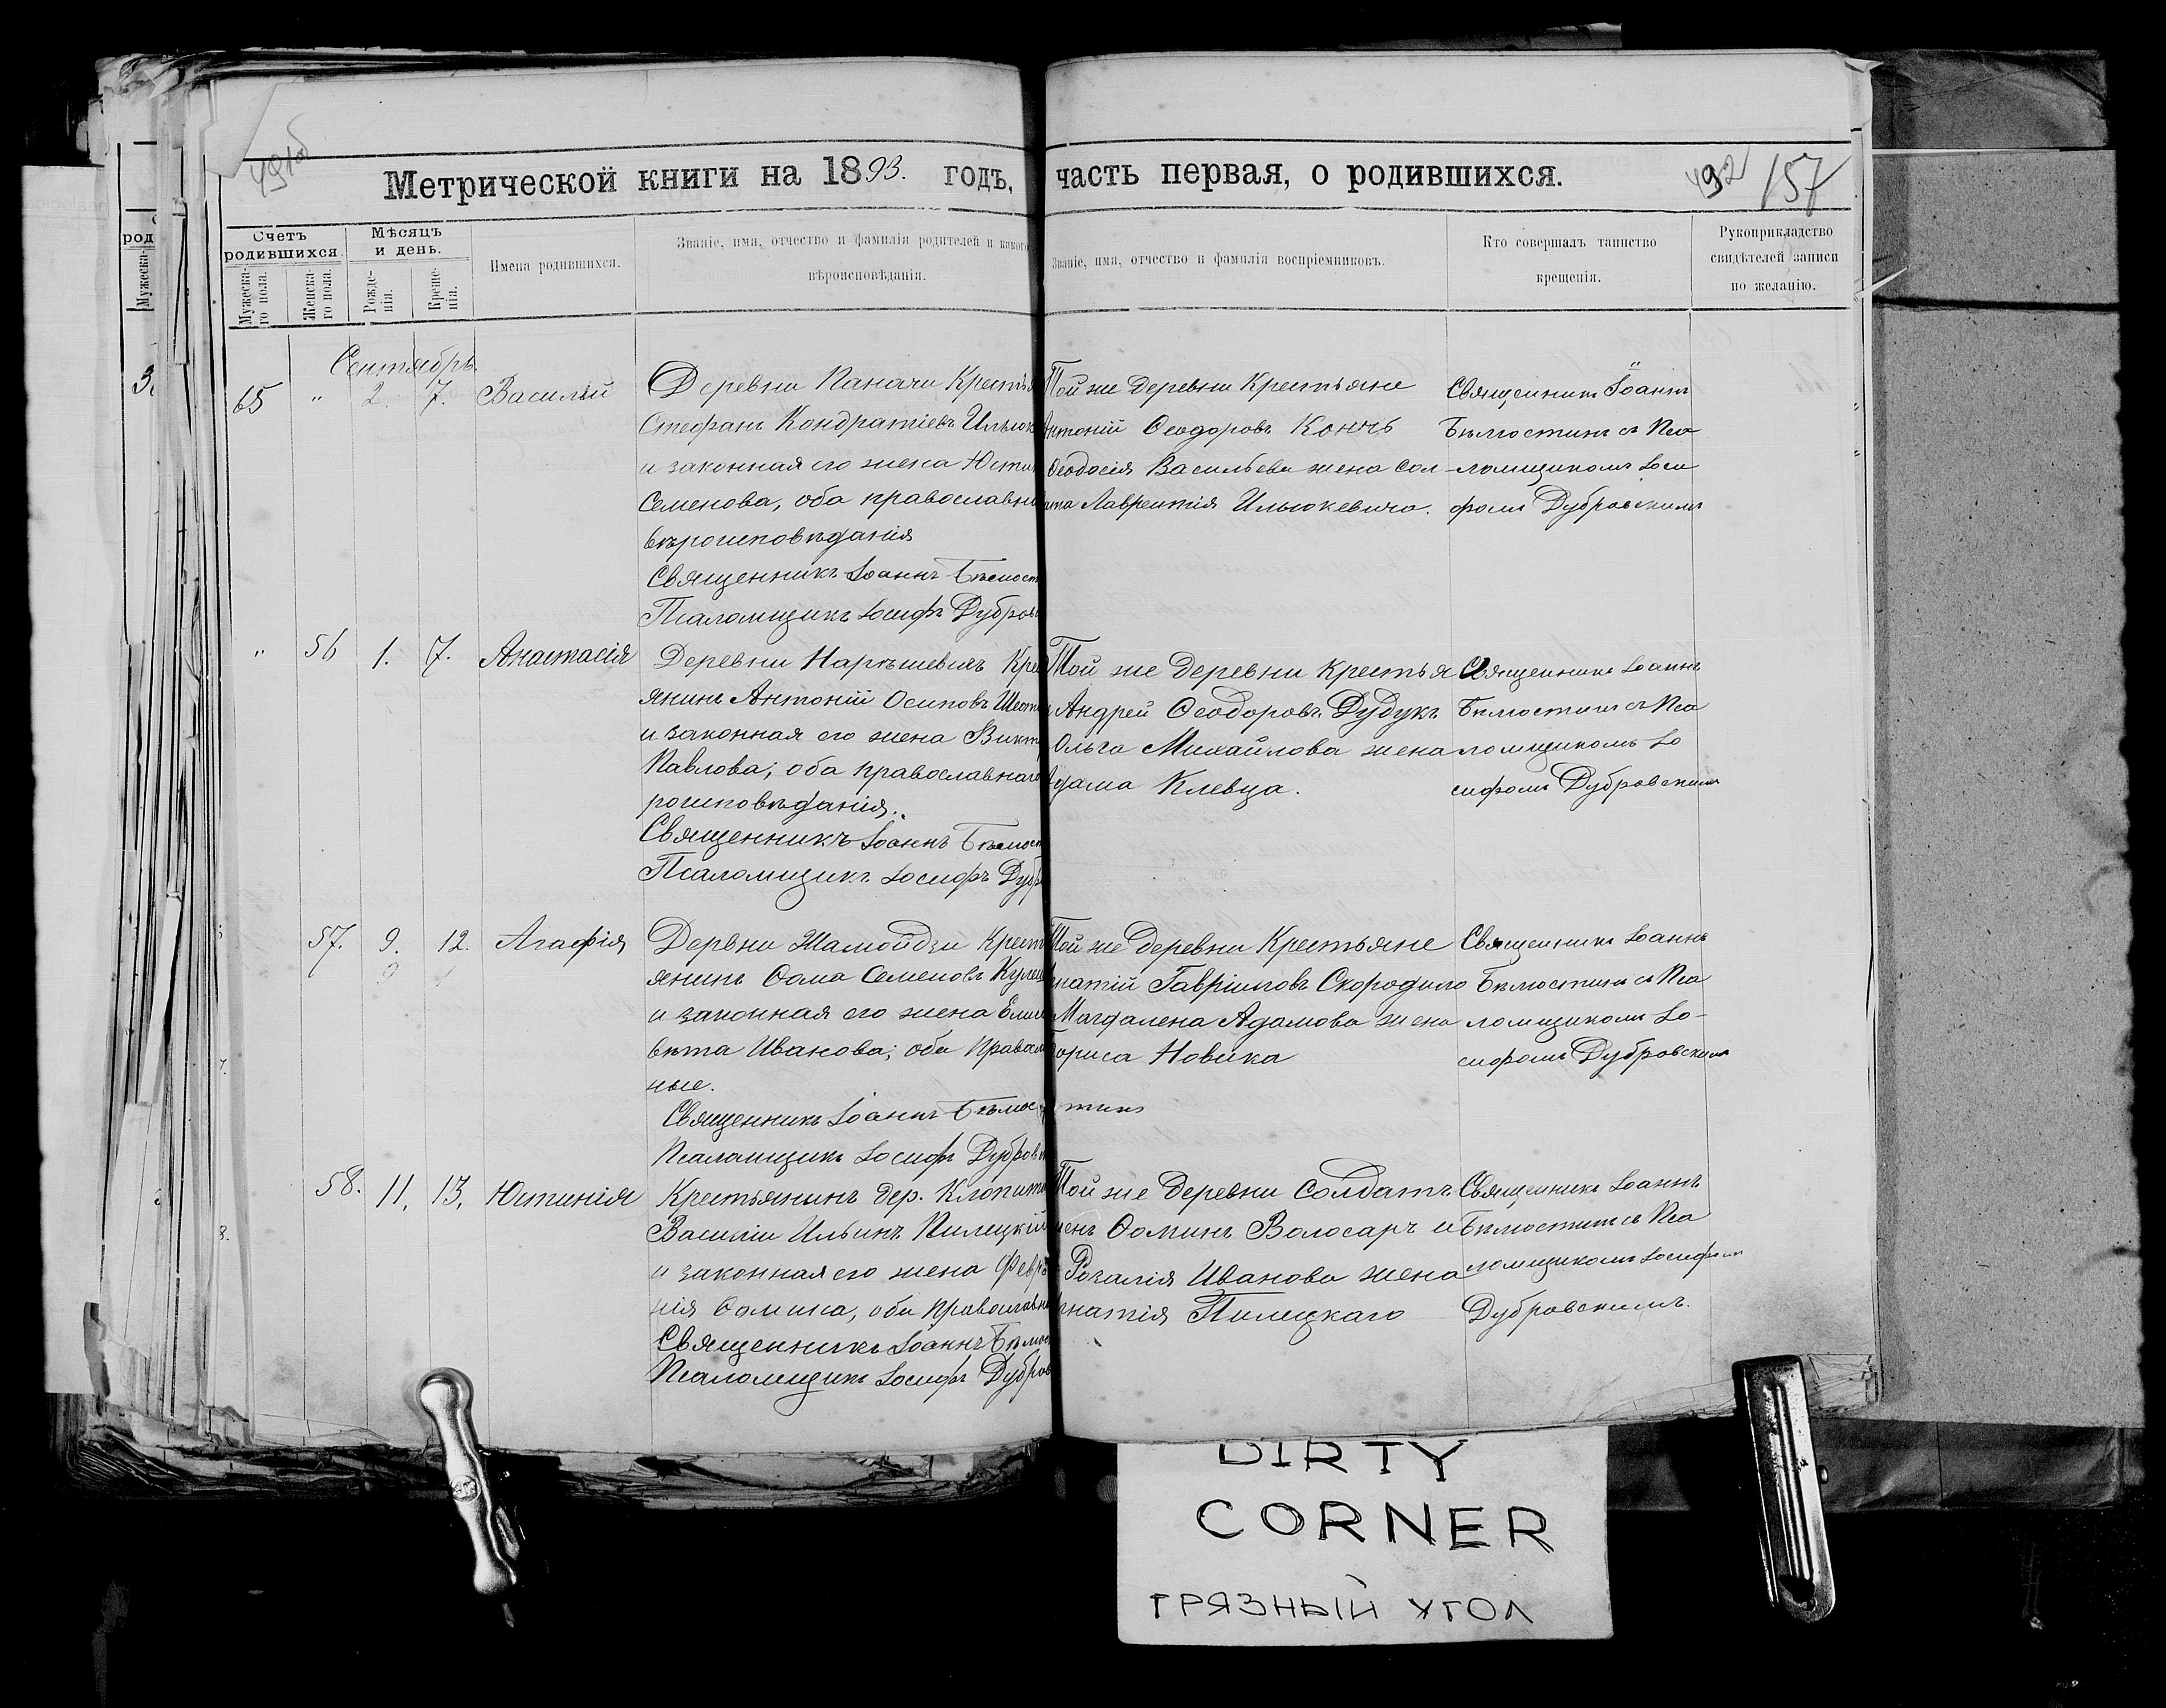 491об
Метрической книги на 1893. годъ, часть первая, о родившихся.
492 157
Счетъ родившихся.
Мѣсяцъ и день.
Мужеска-го пола.
Женска-го пола.
Рожде-нія.
Креще-нія.
Имена родившихся.
Званіе, имя, отчество и фамилія родителей и какого
вѣроисповѣданія.
Званіе, имя, отчество и фамилія воспріемниковъ.
Кто совершалъ таинство
крещенія.
Рукоприкладство
свидѣтелей записи
по желанію.
Сентябрь.
65 " 2. 7. Василій
Деревни Паначи Крестья
Стефанъ Кондратіевъ Ильюк
и законная его жена Юсти
Семенова, оба православна
вѣроисповѣданія
Священникъ Іоаннъ Бѣлост
Псаломщикъ Іосифъ Дубров
Той же деревни Крестьяне
Антоній Ѳеодоровъ Кончъ
Ѳеодосія Васильева жена сол-
дата Лаврентія Ильюкевича.
Священникъ Іоаннъ
Бѣлостинъ съ Пса
ломщикомъ Іоси
фомъ Дубровскимъ
" 56 1. 7. Анастасія
Деревни Нарѣшевичъ Крес
янинъ Антоній Осиповъ
и законная его жена Викт
Павлова; оба православнаго
роисповѣданія.
Священникъ Іоаннъ Бѣлост
Псаломщикъ Іосифъ Дубр
Той же деревни крестья
Андрей Ѳеодоровъ Дудукъ
Ольга Михайлова жена
Адама Клевца.
Священникъ Іоаннъ
Бѣлостинъ съ Пса
ломщикомъ Іо
сифомъ Дубровскимъ
57. 9. 12. Агафія
9
Дервни Жамойдзи Крест
янинъ Ѳома Семеновъ Кулеш
и законная его жена Елиза
вѣта Иванова; оба Правосл
ные.
Священникъ Іоаннъ Бѣлостинъ
Псаломщикъ Іосифъ Дубровс
Той же деревни Крестьяне
натій Гавріиловъ Скородило
Магдалена Адамова жена
Бориса Новика
Священникъ Іоаннъ
Бѣлостинъ съ Пса
ломщикомъ Іо-
сифомъ Дубровскимъ
58. 11. 13. Юстинія
Крестьянинъ дер.
Василій Ильинъ Пилецкій
и законная его жена Февро
нія Ѳомина, оба православн
Священникъ Іоаннъ Бѣлос
Псаломщикъ Іосифъ Дубров
Той же деревни Солдатъ
Ѳоминъ Волосарь и
Розалія Иванова жена
Игнатія Пилецкаго
Священникъ Іоаннъ
Бѣлостинъ съ Пса
ломщикомъ Іосифомъ
Дубровскимъ.
DIRTY
CORNER
ГРЯЗНЫЙ УГОЛ